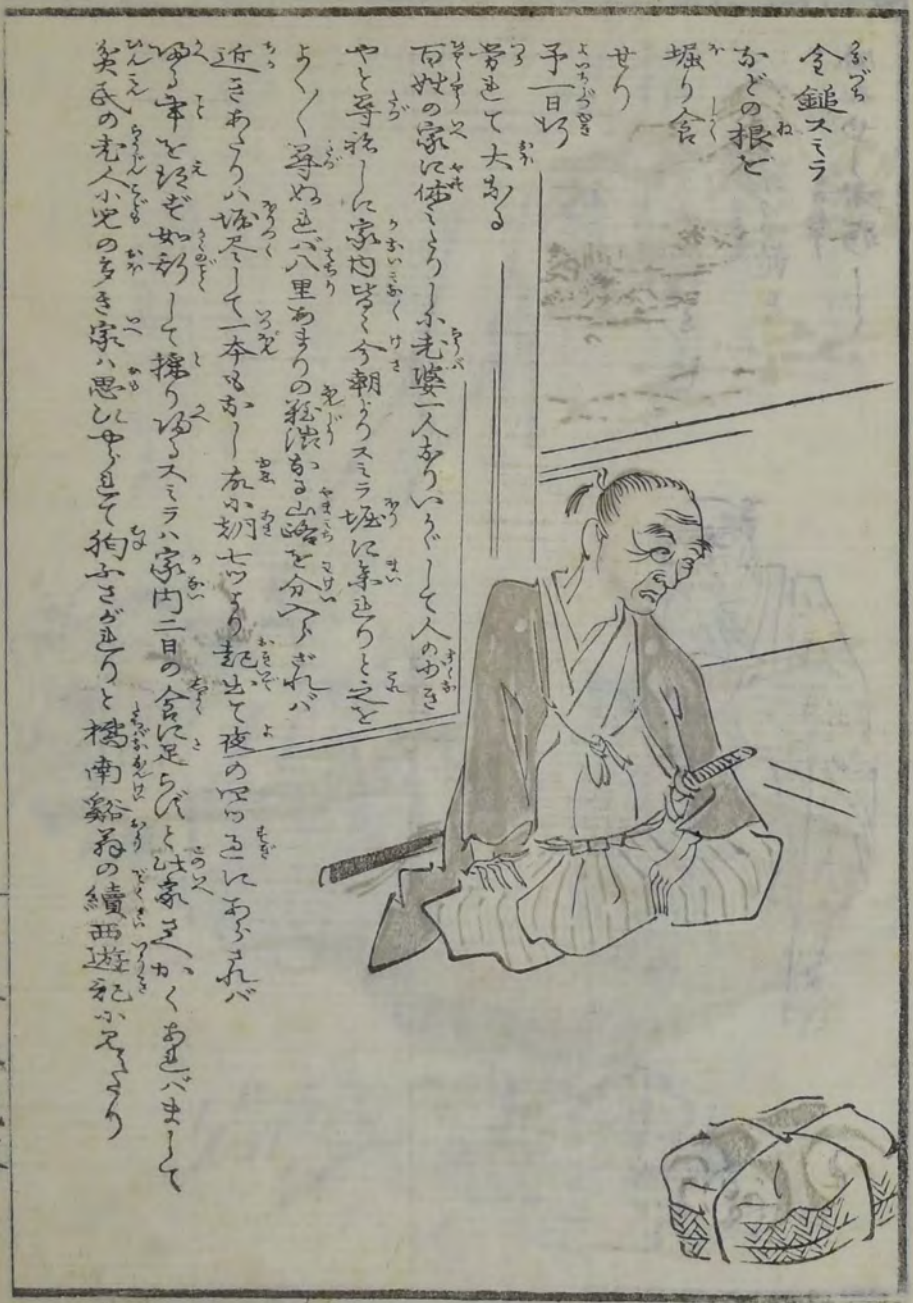 金鎚スミラ
などの根を
堀り食
せり
予一日行
労れて大なる
百姓の家に休みたりしに老婆一人ありいかゞして人の少き
やと尋被しに家内皆々今朝よりスミラ堀に参れりと之を
よく〳〵尋ぬれバ八里あまりの難渋なる山路を分入らざれバ
近きあたりハ堀尽して一本もなし故に朝七ツより起出て夜の四ツ過にあらされバ
帰る事を得ず如斯して採り帰るスミラハ家内二日の食に足らずと此家さへかくあれバまして
貧民の老人小児の多き家ハ思ひやられて胸ふさがれりと橘南谿翁の續西遊記に見えたり